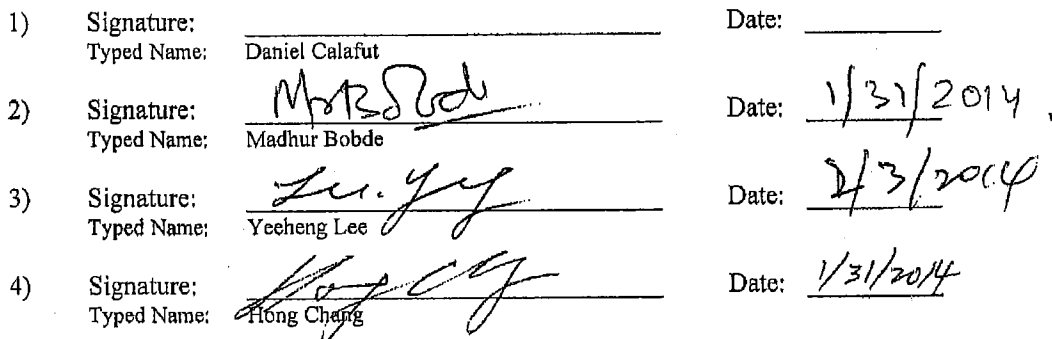 1) Signature: Date:
Typed Name: Daniel Calafut
2) Signature: Date: 1/31/2014
Typed Name: Madhur Bobde
3) Signature: Date: 2/3/2014
Typed Name: Yeeheng Lee
4) Signature: Date: 1/31/2014
Typed Name: Hong Chang